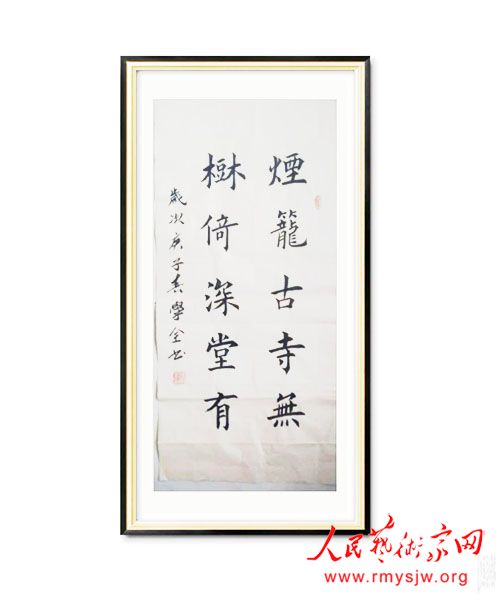 煙籠古寺無
樹倚深堂有
歲次庚子春學全书
人民藝術家网
www.rmysjw.org